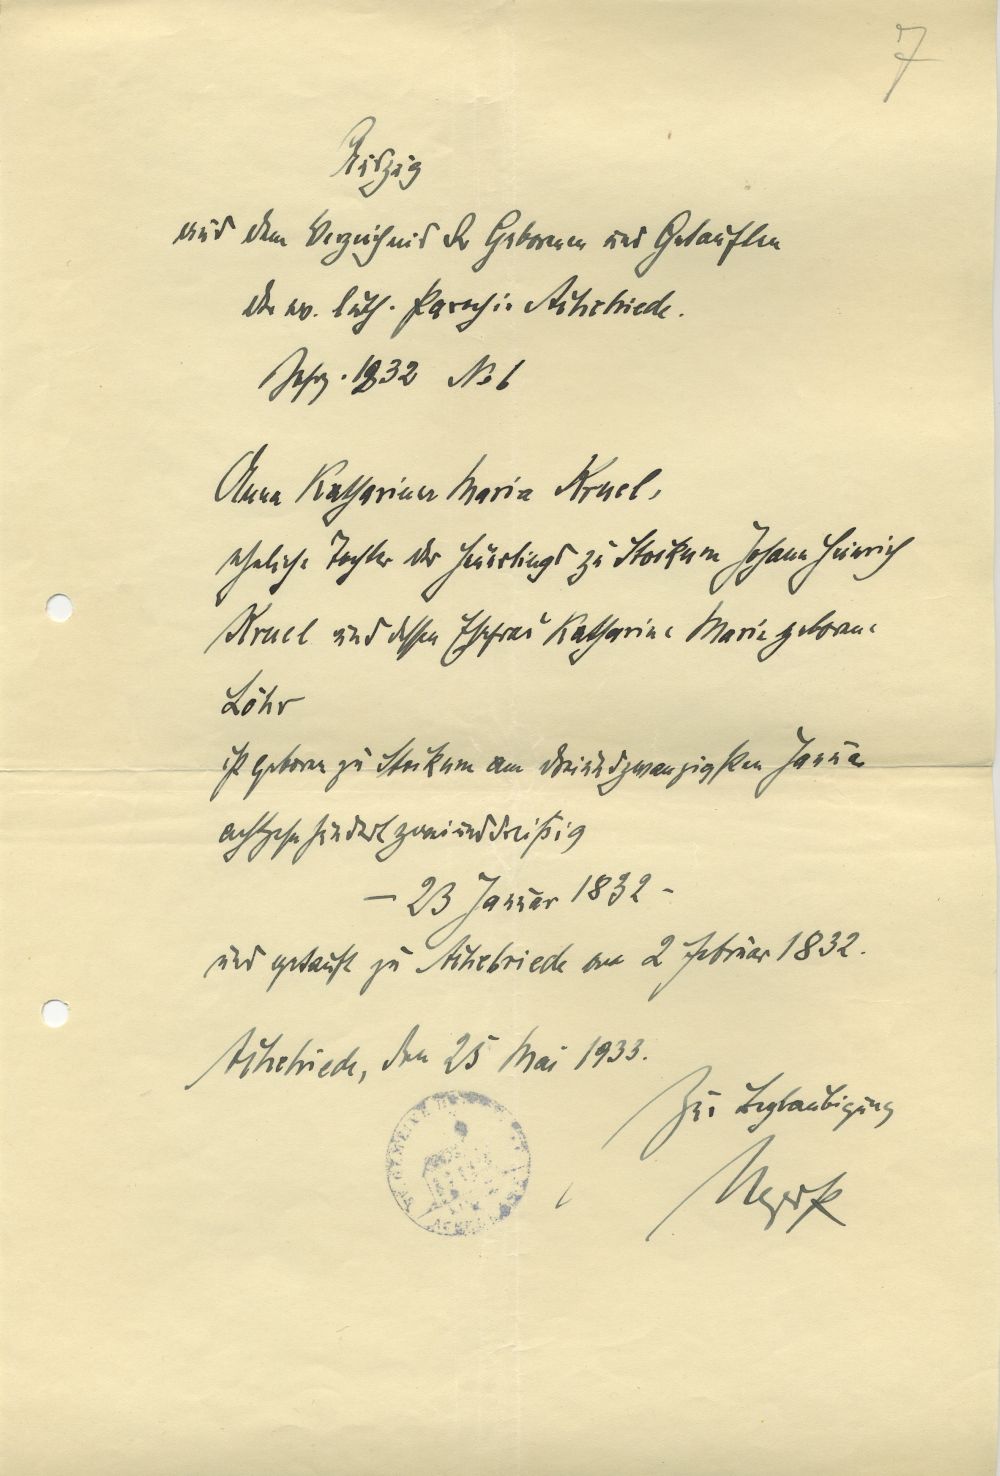 7
Auszug
aus dem Verzeichnis der Geborenen und Getauften
der ev. luth. Parochie Achelriede.
Jahrg. 1832 No 6
Anna Katharina Maria Kruel,
eheliche Tochter des Heuerlings zu Stockum Johann Heinrich
Kruel und dessen Ehefrau Katharine Marie geborene
Löhr
ist geboren zu Stockum am dreiundzwanzigsten Januar
achtzehnhundertzweiunddreißig
– 23 Januar 1832 –
und getauft zu Achelriede am 2 Februar 1832.
Achelriede, den 25 Mai 1933.
Zur Beglaubigung